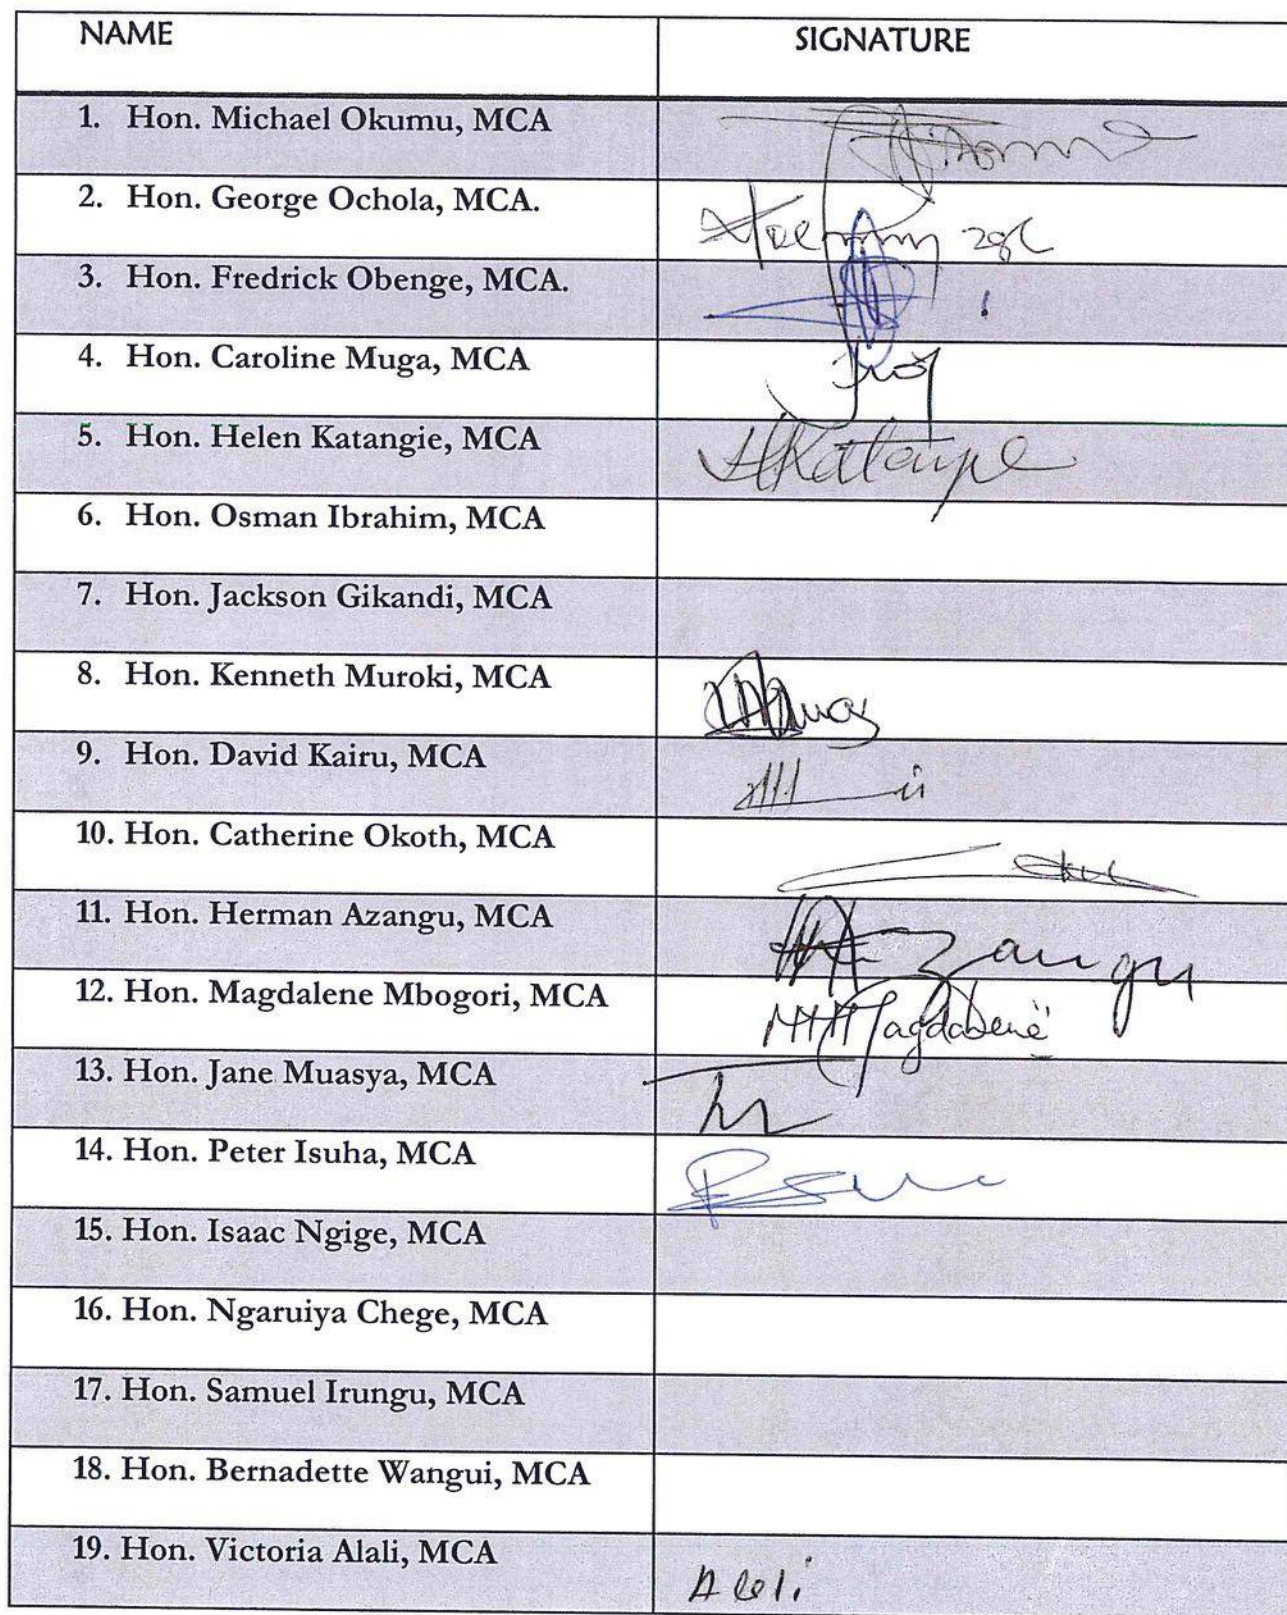 NAME SIGNATURE
1. Hon. Michael Okumu, MCA
2. Hon. George Ochola, MCA.
3. Hon. Fredrick Obenge, MCA.
4. Hon. Caroline Muga, MCA
5. Hon. Helen Katangie, MCA
6. Hon. Osman Ibrahim, MCA
7. Hon. Jackson Gikandi, MCA
8. Hon. Kenneth Muroki, MCA
9. Hon. David Kairu, MCA
10. Hon. Catherine Okoth, MCA
11. Hon. Herman Azangu, MCA Azangu
12. Hon. Magdalene Mbogori, MCA
13. Hon. Jane Muasya, MCA
14. Hon. Peter Isuha, MCA
15. Hon. Isaac Ngige, MCA
16. Hon. Ngaruiya Chege, MCA
17. Hon. Samuel Irungu, MCA
18. Hon. Bernadette Wangui, MCA
19. Hon. Victoria Alali, MCA